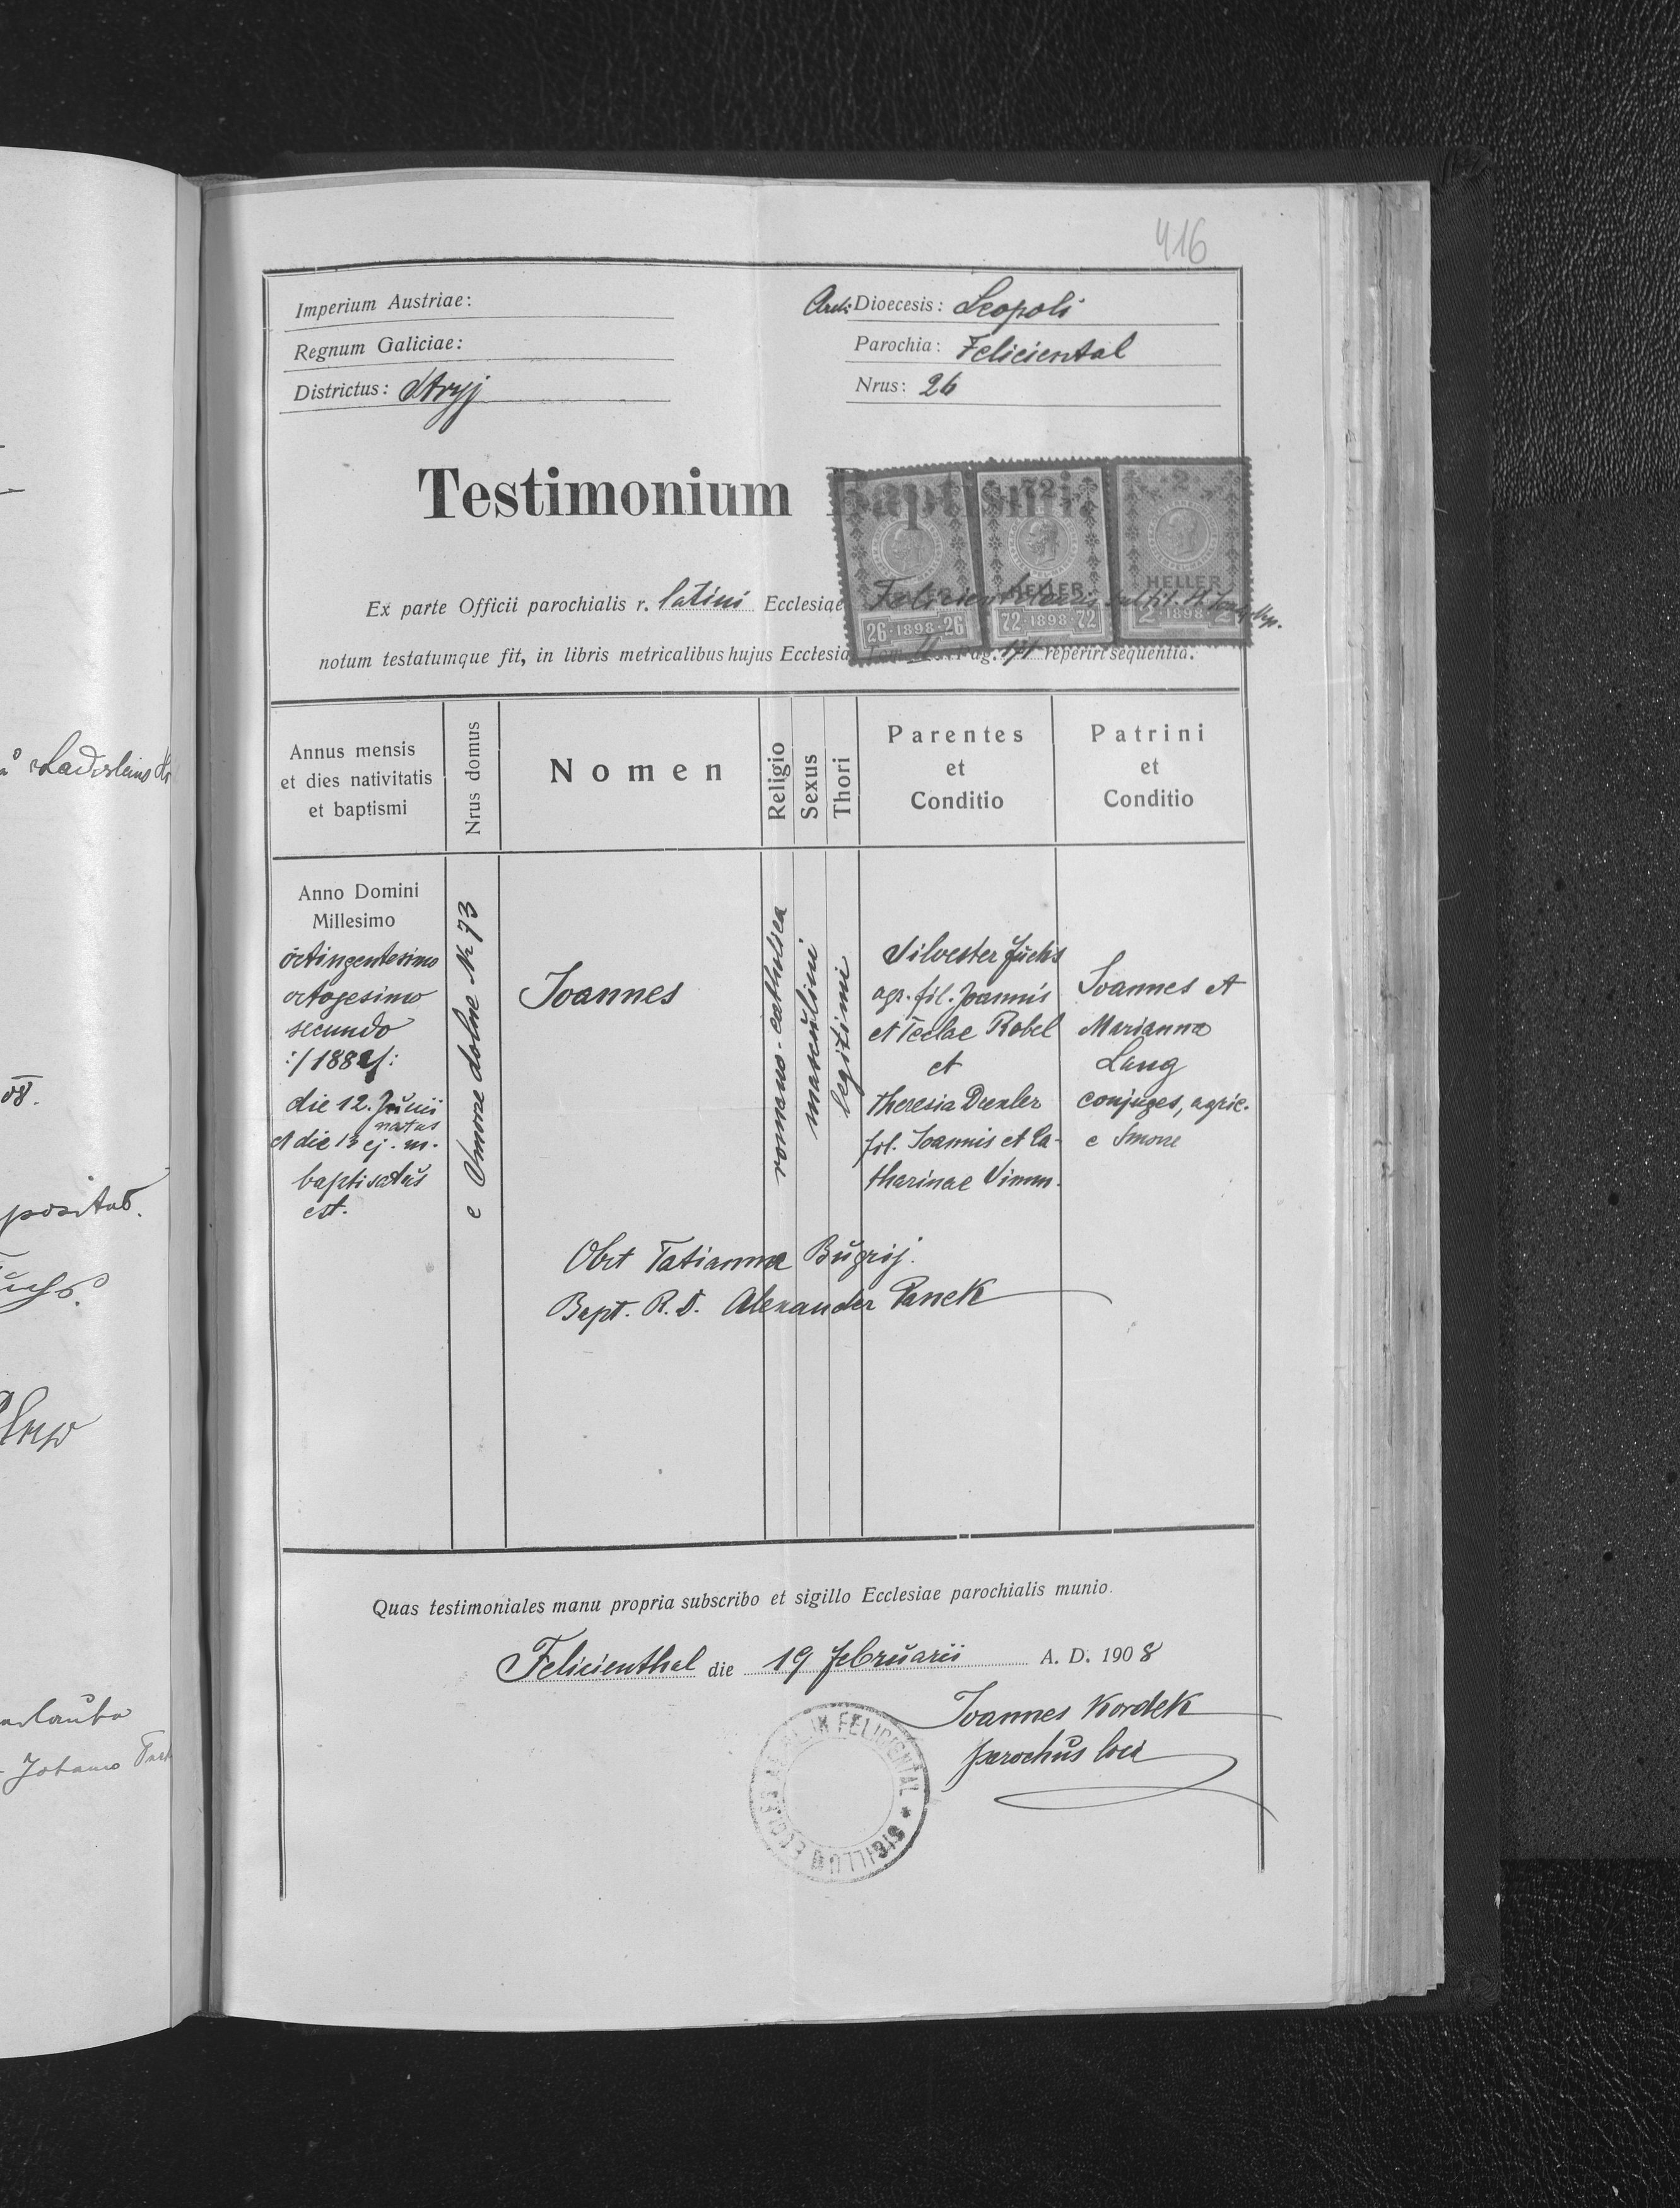 416
Imperium Austriae:
Regnum Galiciae:
Districtus: Stryj
Archi Dioecesis: Leopoli
Parochia: Feliciental
Nrus: 26
Testimonium Baptismi
Ex parte Officii parochialis r. latini Ecclesiae
notum testatumque fit, in libris metricalibus hujus Ecclesiae Tom II pag. 171 reperiri sequentia.
72
2
HELLER
HELLER
26·1898·26
72·1898·72
2·1898·2
Annus mensis
et dies nativitatis
et baptismi
Nrus domus
Nomen
Religio
Sexus
Thori
Parentes
et
Conditio
Patrini
et
Conditio
Anno Domini
Millesimo
octingentesimo
octogesimo
secundo
:/1882/:
die 12. Junii
natus
et die 13 ej. m.
baptisatus
est.
e Smorze dolne Nr 73
Joannes
romano-catholica
masculini
legitimi
Silvester Fuchs
agr. fil. Joannis
et Teclae Robel
et
Theresia Drexler
fil. Joannis et Ca-
tharinae Simm.
Joannes et
Marianna
Lang
conjuges, agric.
e Smorze
Obst Tatianna Bugrij.
Bapt. R. D. Alexander Panek
Quas testimoniales manu propria subscribo et sigillo Ecclesiae parochialis munio.
Felicienthal die 19 februarii A. D. 1908
Joannes Kordek
parochus loci
FELICIENTAL * SIGILLUM ECCLES
positus.